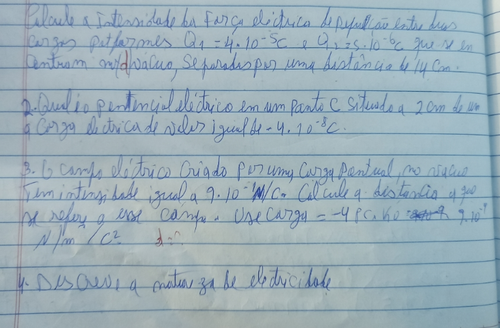 Calcule a Intensidade da Força eléctrica de repulsão entre duas
cargas Q1 = 4.10⁻⁵C e Q2 = 5.10⁻⁶c que se en
contram no vácuo, separadas por uma distância de 14 cm.
2. Qual é o pontencial eléctrico em um ponto C situado a 2 cm de um
a Carga eléctrica de valor igual de - 4.10⁻⁸C.
3. O campo eléctrico Criado por uma Carga pontual, no vácuo
Tem intensidade igual a 9.10 N/C. Calcule a distância a que
se refere a esse campo. Use Carga = -4 PC. K0 = 9.10⁻⁹
N/m / C² d=?
4. Descreve a natureza de electricidade